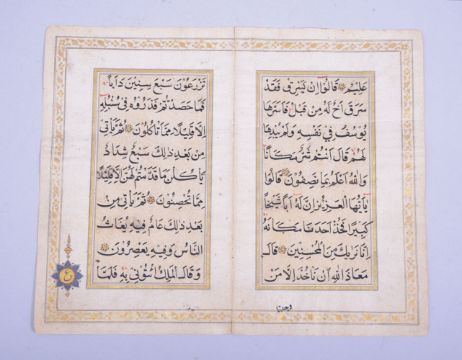 عَلِيمٌ قَالُوا إِنْ يَسْرِقْ فَقَدْ
سَرَقَ أَخٌ لَهُ مِنْ قَبْلُ فَأَسَرَّهَا
يُوسُفُ فِي نَفْسِهِ وَلَمْ يُبْدِهَا
لَهُمْ قَالَ أَنْتُمْ شَرٌّ مَكَانًا
وَاللَّهُ أَعْلَمُ بِمَا تَصِفُونَ قَالُوا
يَا أَيُّهَا الْعَزِيزُ إِنَّ لَهُ أَبًا شَيْخًا
كَبِيرًا فَخُذْ أَحَدَنَا مَكَانَهُ
إِنَّا نَرَاكَ مِنَ الْمُحْسِنِينَ قَالَ
مَعَاذَ اللَّهِ أَنْ نَأْخُذَ إِلَّا مَنْ
وجدنا
تَزْرَعُونَ سَبْعَ سِنِينَ دَأَبًا
فَمَا حَصَدْتُمْ فَذَرُوهُ فِي سُنْبُلِهِ
إِلَّا قَلِيلًا مِمَّا تَأْكُلُونَ ثُمَّ يَأْتِي
مِنْ بَعْدِ ذَلِكَ سَبْعٌ شِدَادٌ
يَأْكُلْنَ مَا قَدَّمْتُمْ لَهُنَّ إِلَّا قَلِيلًا
مِمَّا تُحْصِنُونَ ثُمَّ يَأْتِي مِنْ
بَعْدِ ذَلِكَ عَامٌ فِيهِ يُغَاثُ
النَّاسُ وَفِيهِ يَعْصِرُونَ
وَقَالَ الْمَلِكُ ائْتُونِي بِهِ فَلَمَّا
ع